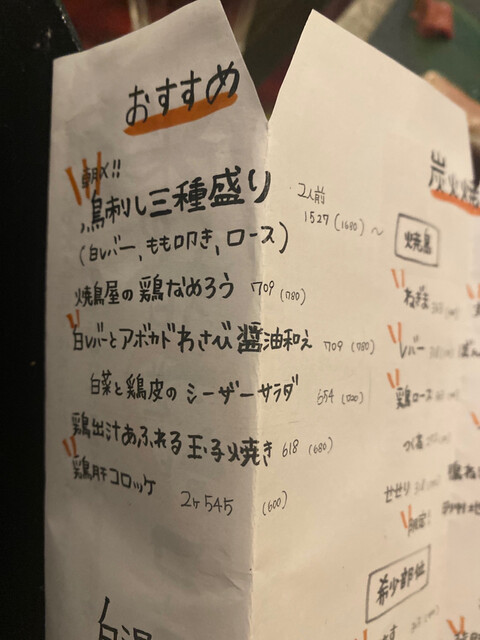 おすすめ
朝〆!!
鳥刺し三種盛り 2人前 1527(1680)～
(白レバー、もも叩き、ロース)
焼鳥屋の鶏なめろう 709(780)
白レバーとアボカドわさび醤油和え 709(780)
白菜と鶏皮のシーザーサラダ 654(720)
鶏出汁あふれる玉子焼き 618(680)
鶏肝コロッケ 2ヶ545(600)
炭火焼
焼鳥
ねぎま
レバー
鶏ロース
せせり
限定!
希少部位